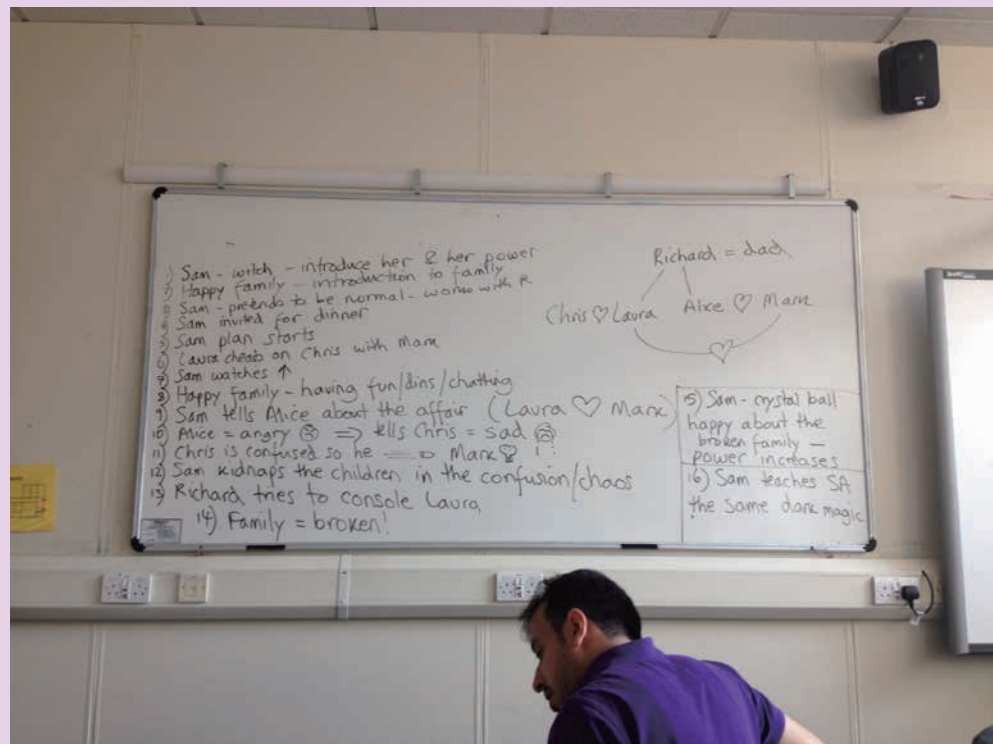 1) Sam - witch - introduce her & her power
2) Happy family - introduction to family
3) Sam - pretends to be normal - works with R
4) Sam invited for dinner
5) Sam plan starts
6) Laura cheats on Chris with Mark
7) Sam watches ↑
8) Happy Family - having fun/dins/chatting
9) Sam tells Alice about the affair (Laura ♡ Mark)
10) Alice = angry ☹ ⇒ tells Chris = sad ☹
11) Chris is confused so he → Mark
12) Sam kidnaps the children in the confusion/chaos
13) Richard tries to console Laura
14) Family = broken!
Richard = dad
Chris ♡ Laura Alice ♡ Mark
♡
15) Sam - crystal ball
happy about the
broken family -
power increases
16) Sam teaches SA
the same dark magic